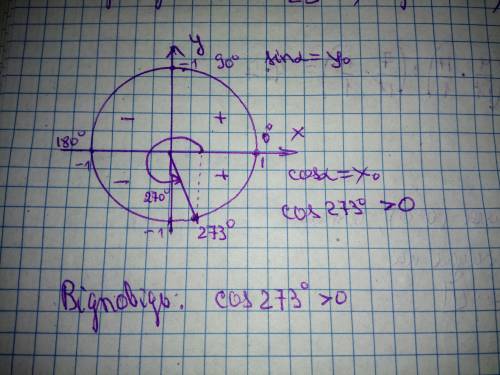 y
1 90° sinα = y₀
- +
180° 0° x
-1 1
- + cosα = x₀
270° cos 273° > 0
-1 273°
Відповідь: cos 273° > 0